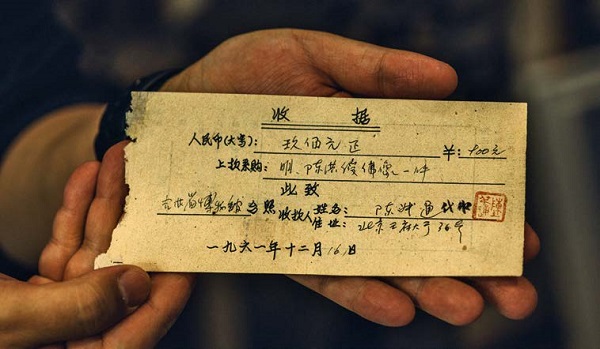 收 据
人民币(大写): 玖佰元正 ¥: 900元
上款系购: 明、陈洪绶佛像一件
此致
省博物馆 台照 收款人 姓名: 陈
住址: 北京王府大 36号
一九六一年十二月16日